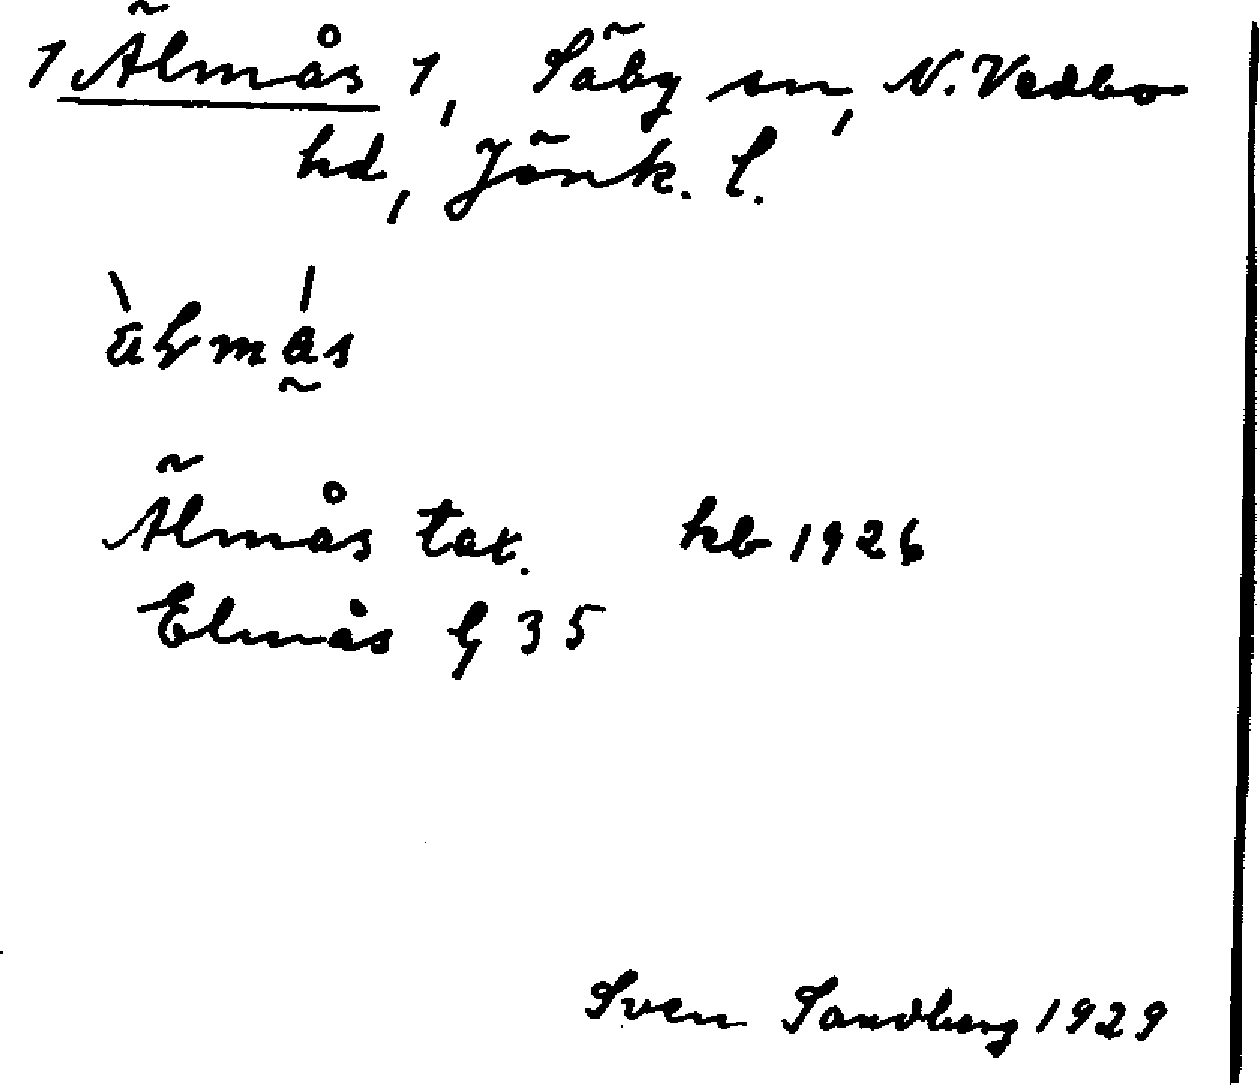 1 Älmås 1, Säby sn, N. Vedbo
hd, Jönk. l.
Älmås tax. hb 1926
Elmås G 35
Sven Sandberg 1929